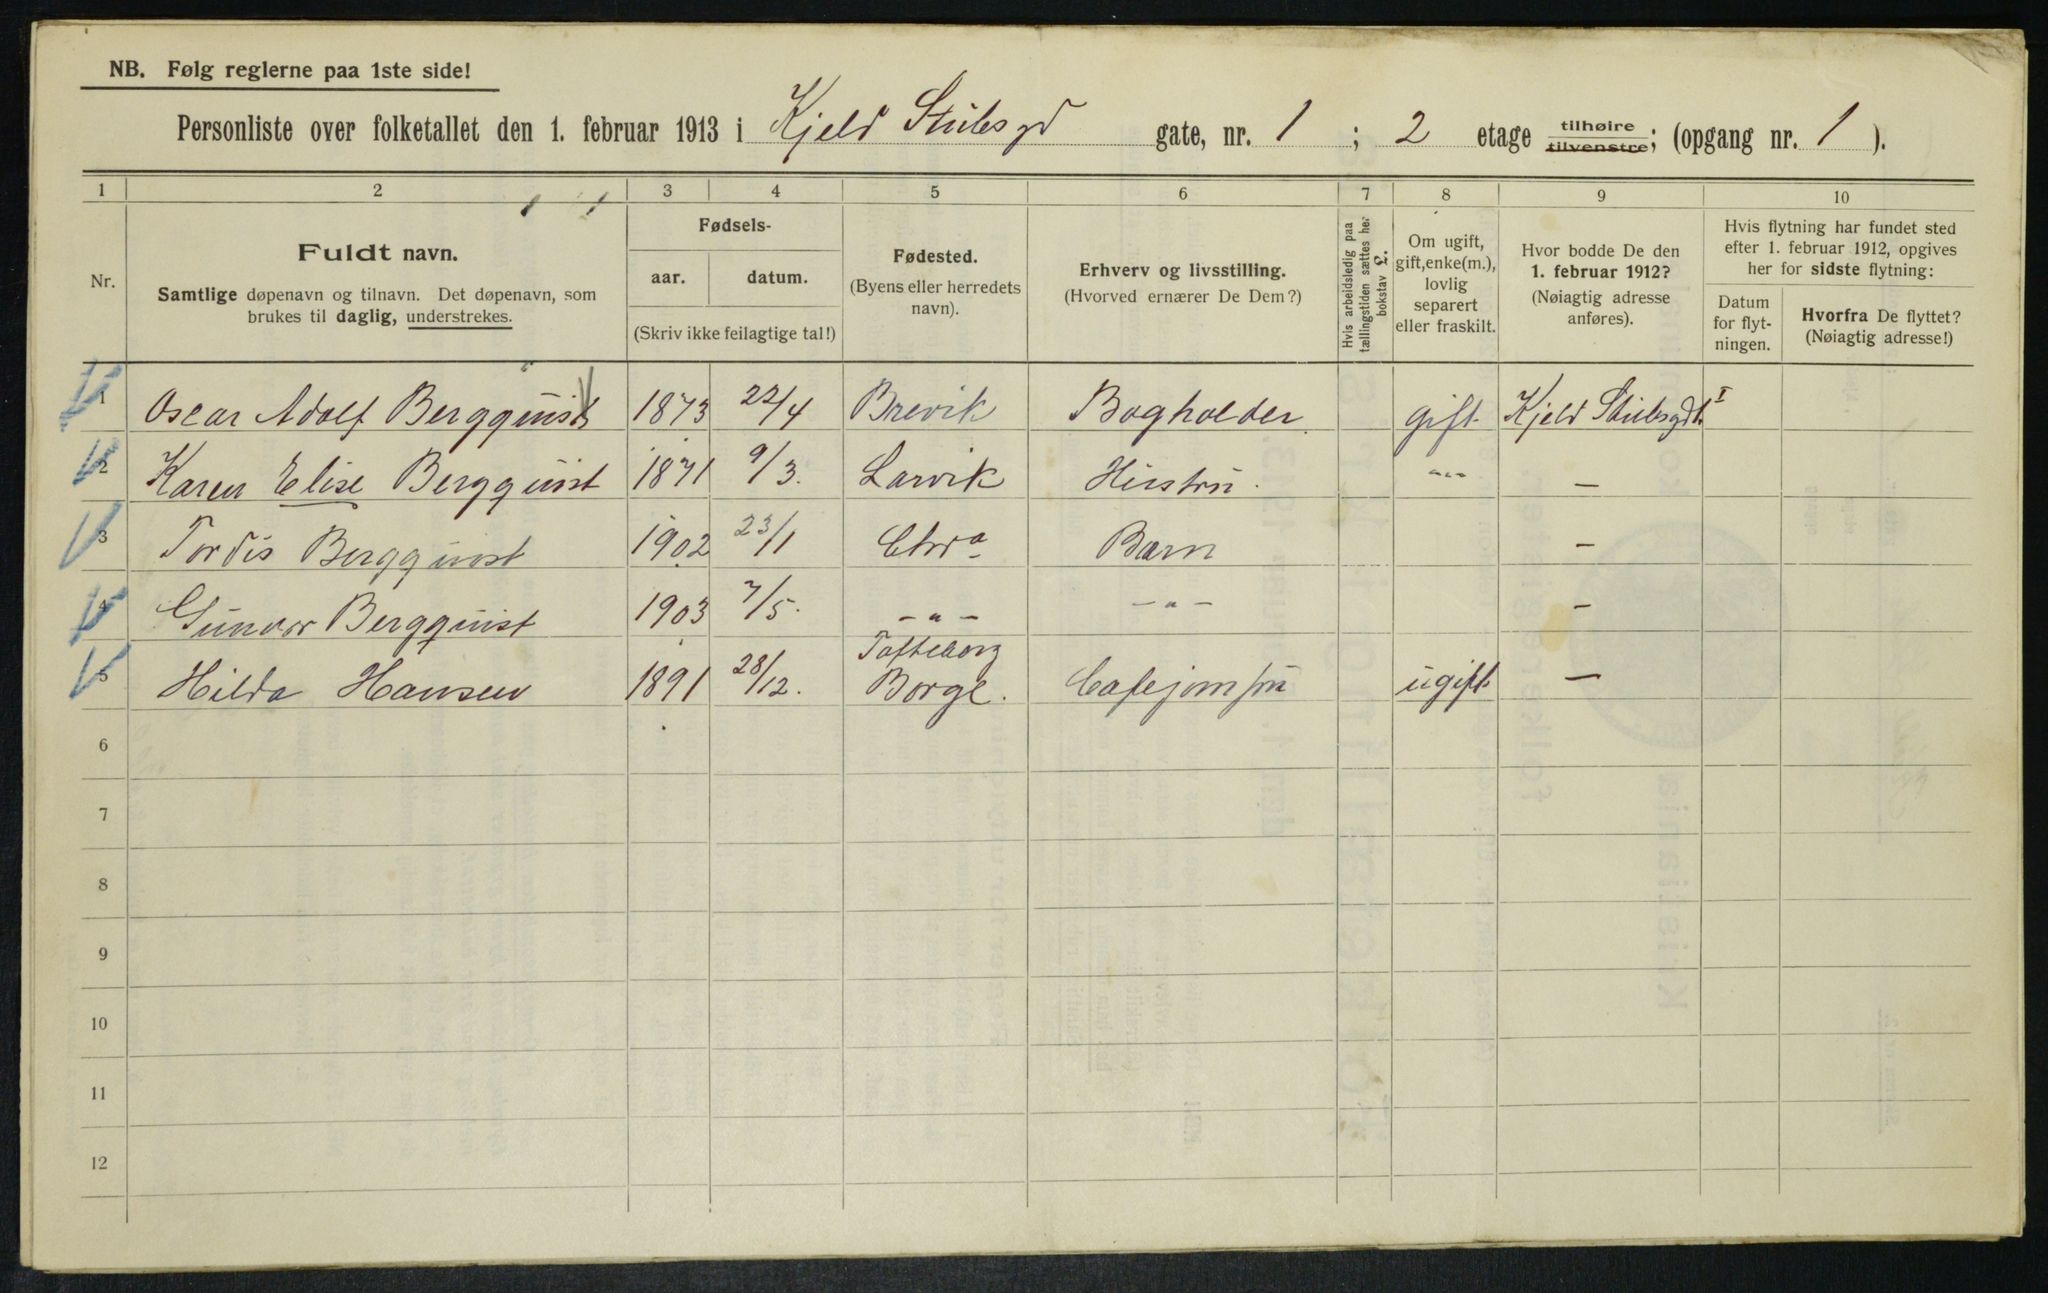 NB. Følg reglerne paa 1ste side!
Personliste over folketallet den 1. februar 1913 i Kjeld Stubsgd gate, nr. 1 ; 2 etage tilhøire tilvenstre; (opgang nr. 1 ).
1 2 3 4 5 6 7 8 9 10
Nr.
Fuldt navn.
Samtlige døpenavn og tilnavn. Det døpenavn, som
brukes til daglig, understrekes.
Fødsels-
aar. datum.
(Skriv ikke feilagtige tal!)
Fødested.
(Byens eller herredets
navn).
Erhverv og livsstilling.
(Hvorved ernærer De Dem?)
Hvis arbeidsledig paa
tællingstiden sættes her
bokstav L.
Om ugift,
gift, enke(m.),
lovlig
separert
eller fraskilt.
Hvor bodde De den
1. februar 1912?
(Nøiagtig adresse
anføres).
Hvis flytning har fundet sted
efter 1. februar 1912, opgives
her for sidste flytning:
Datum
for flyt-
ningen.
Hvorfra De flyttet?
(Nøiagtig adresse!)
1 Oscar Adolf Bergquist 1873 22/4 Brevik Bogholder gift Kjeld Stubsgd 1 I
2 Karen Elise Bergquist 1871 9/3. Larvik Hustru. -"- —
3 Tordis Bergquist 1902 23/1 Chra Barn —
4 Gunvor Bergquist 1903 7/5. -"- -"- —
5 Hilda Hansen 1891 28/12. Borge. ugift —
6
7
8
9
10
11
12